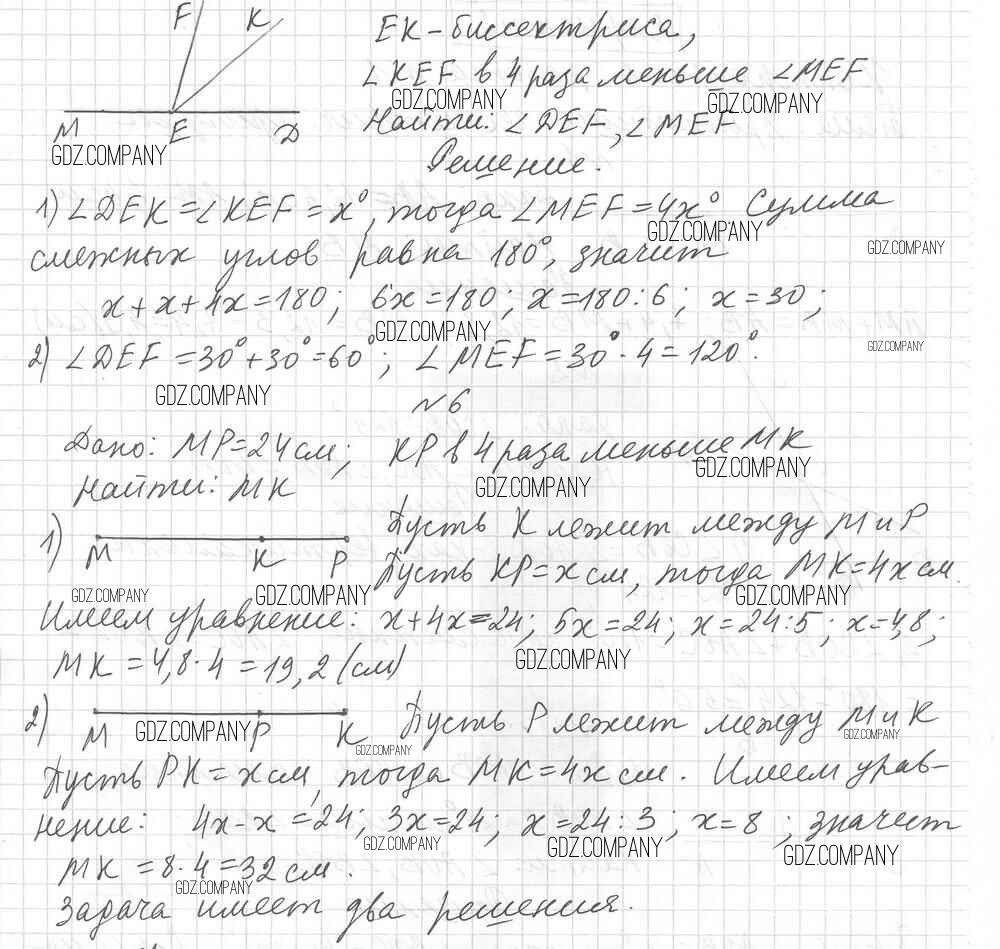 F K
EK - биссектриса,
∠KEF в 4 раза меньше ∠MEF
GDZ.COMPANY GDZ.COMPANY
M E D
Найти: ∠DEF, ∠MEF
GDZ.COMPANY
Решение.
1) ∠DEK = ∠KEF = x°, тогда ∠MEF = 4x° Сумма
GDZ.COMPANY
смежных углов равна 180°, значит
GDZ.COMPANY
x + x + 4x = 180; 6x = 180; x = 180:6; x = 30;
GDZ.COMPANY
2) ∠DEF = 30° + 30° = 60°; ∠MEF = 30° · 4 = 120°.
GDZ.COMPANY
GDZ.COMPANY
№6
Дано: MP = 24 см; KP в 4 раза меньше MK
GDZ.COMPANY
Найти: MK
GDZ.COMPANY
1) M K P
Пусть K лежит между M и P
Пусть KP = x см, тогда MK = 4x см.
GDZ.COMPANY GDZ.COMPANY GDZ.COMPANY
Имеем уравнение: x + 4x = 24; 5x = 24; x = 24:5; x = 4,8;
GDZ.COMPANY
MK = 4,8 · 4 = 19,2 (см)
2) M P K
GDZ.COMPANY
Пусть P лежит между M и K
GDZ.COMPANY GDZ.COMPANY
Пусть PK = x см, тогда MK = 4x см. Имеем урав-
нение: 4x - x = 24; 3x = 24; x = 24:3; x = 8; значит
GDZ.COMPANY GDZ.COMPANY GDZ.COMPANY
MK = 8 · 4 = 32 см.
GDZ.COMPANY
Задача имеет два решения.